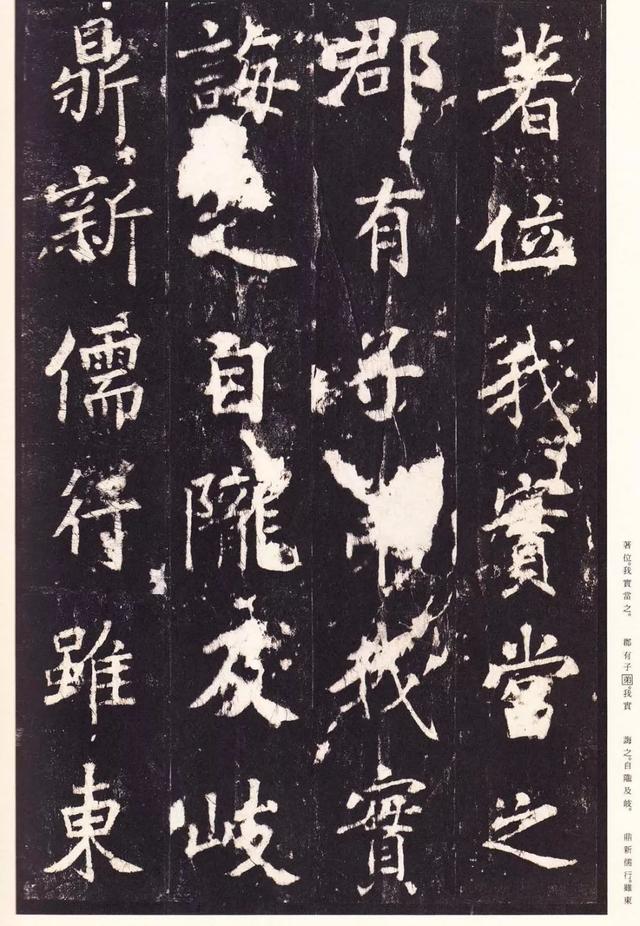 著位我實當之
郡有子弟我實
誨之自隴及岐
鼎新儒行雖東
著位。我實當之。 郡有子弟。我實 誨之。自隴及岐。 鼎新儒行。雖東